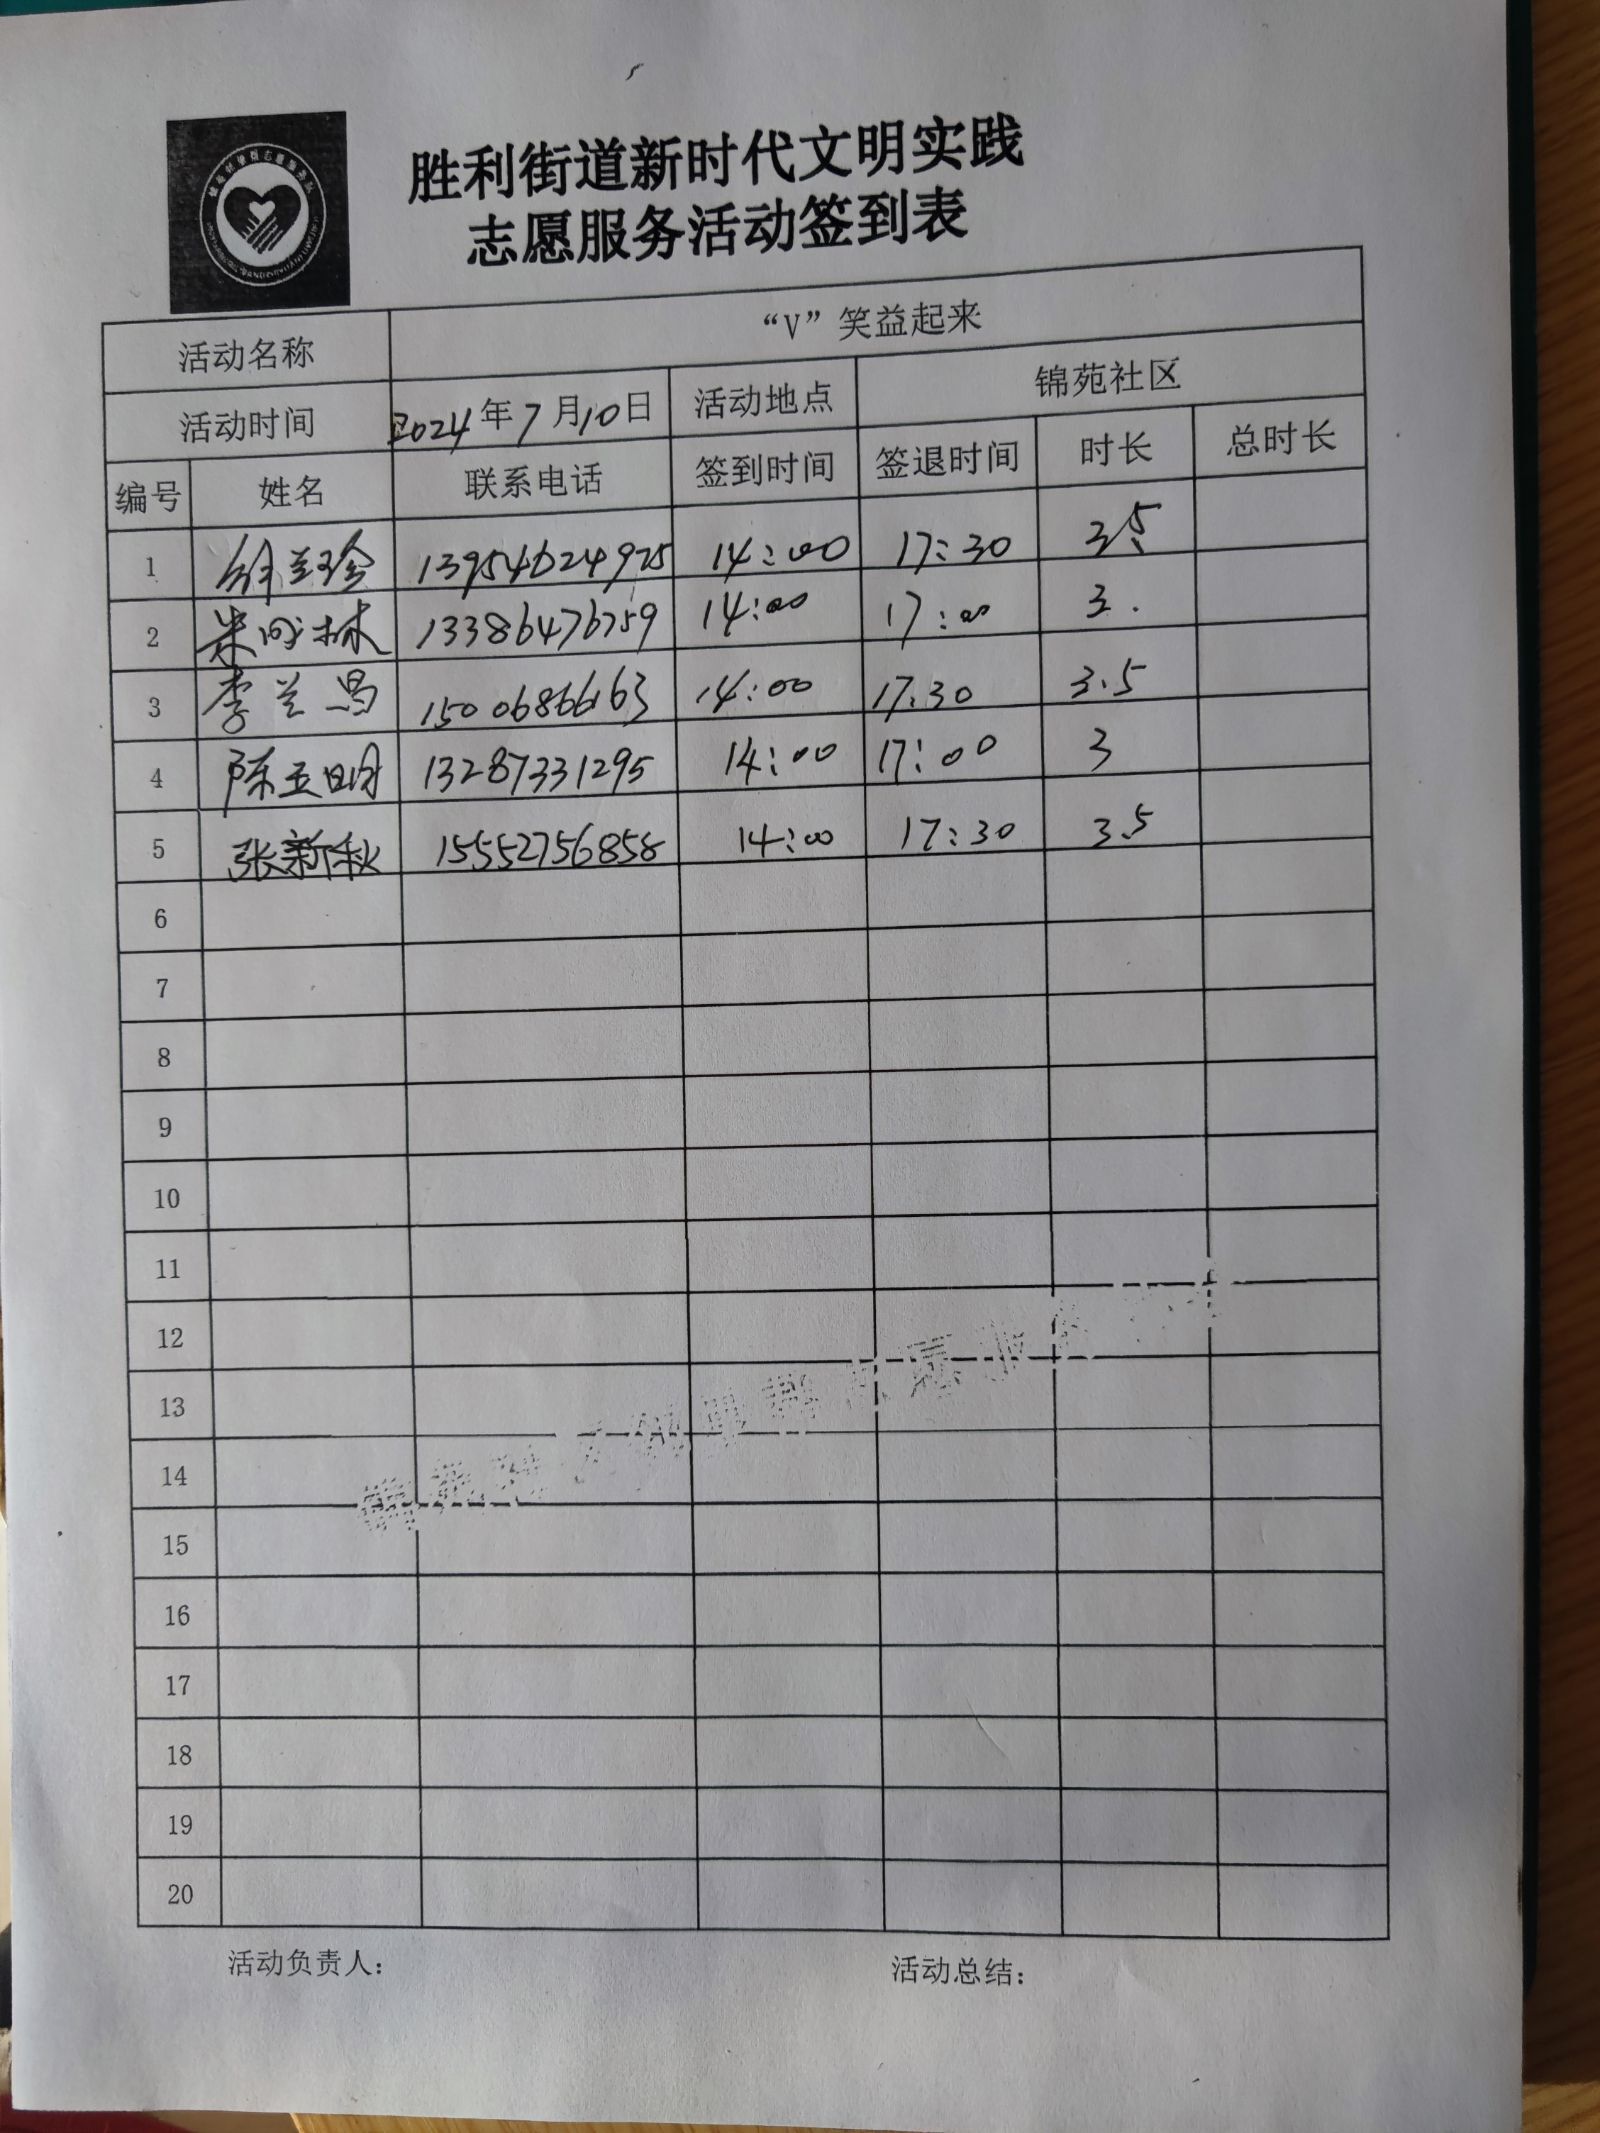 胜利街道新时代文明实践
志愿服务活动签到表
活动名称 “V”笑益起来
活动时间 2024年7月10日 活动地点 锦苑社区
编号 姓名 联系电话 签到时间 签退时间 时长 总时长
1 13954624925 14:00 17:30 3.5
2 13386476759 14:00 17:00 3.
3 李兰昌 15006866163 14:00 17:30 3.5
4 陈玉明 13287331295 14:00 17:00 3
5 张新秋 15552756858 14:00 17:30 3.5
6
7
8
9
10
11
12
13
14
15
16
17
18
19
20
活动负责人： 活动总结：